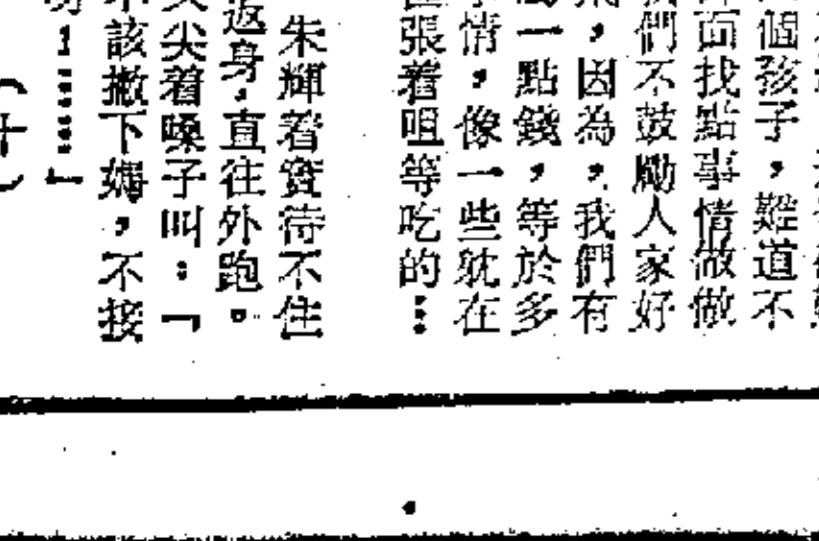 個孩子，難道不
面找點事情做做
們不鼓勵人家好
，因為，我們有
一點錢，等於多
情，像一些躭在
張着咀等吃的⋮
朱輝着實待不住
返身，直往外跑。
尖着嗓子叫：「
該撇下媽，不接
！⋯⋯」